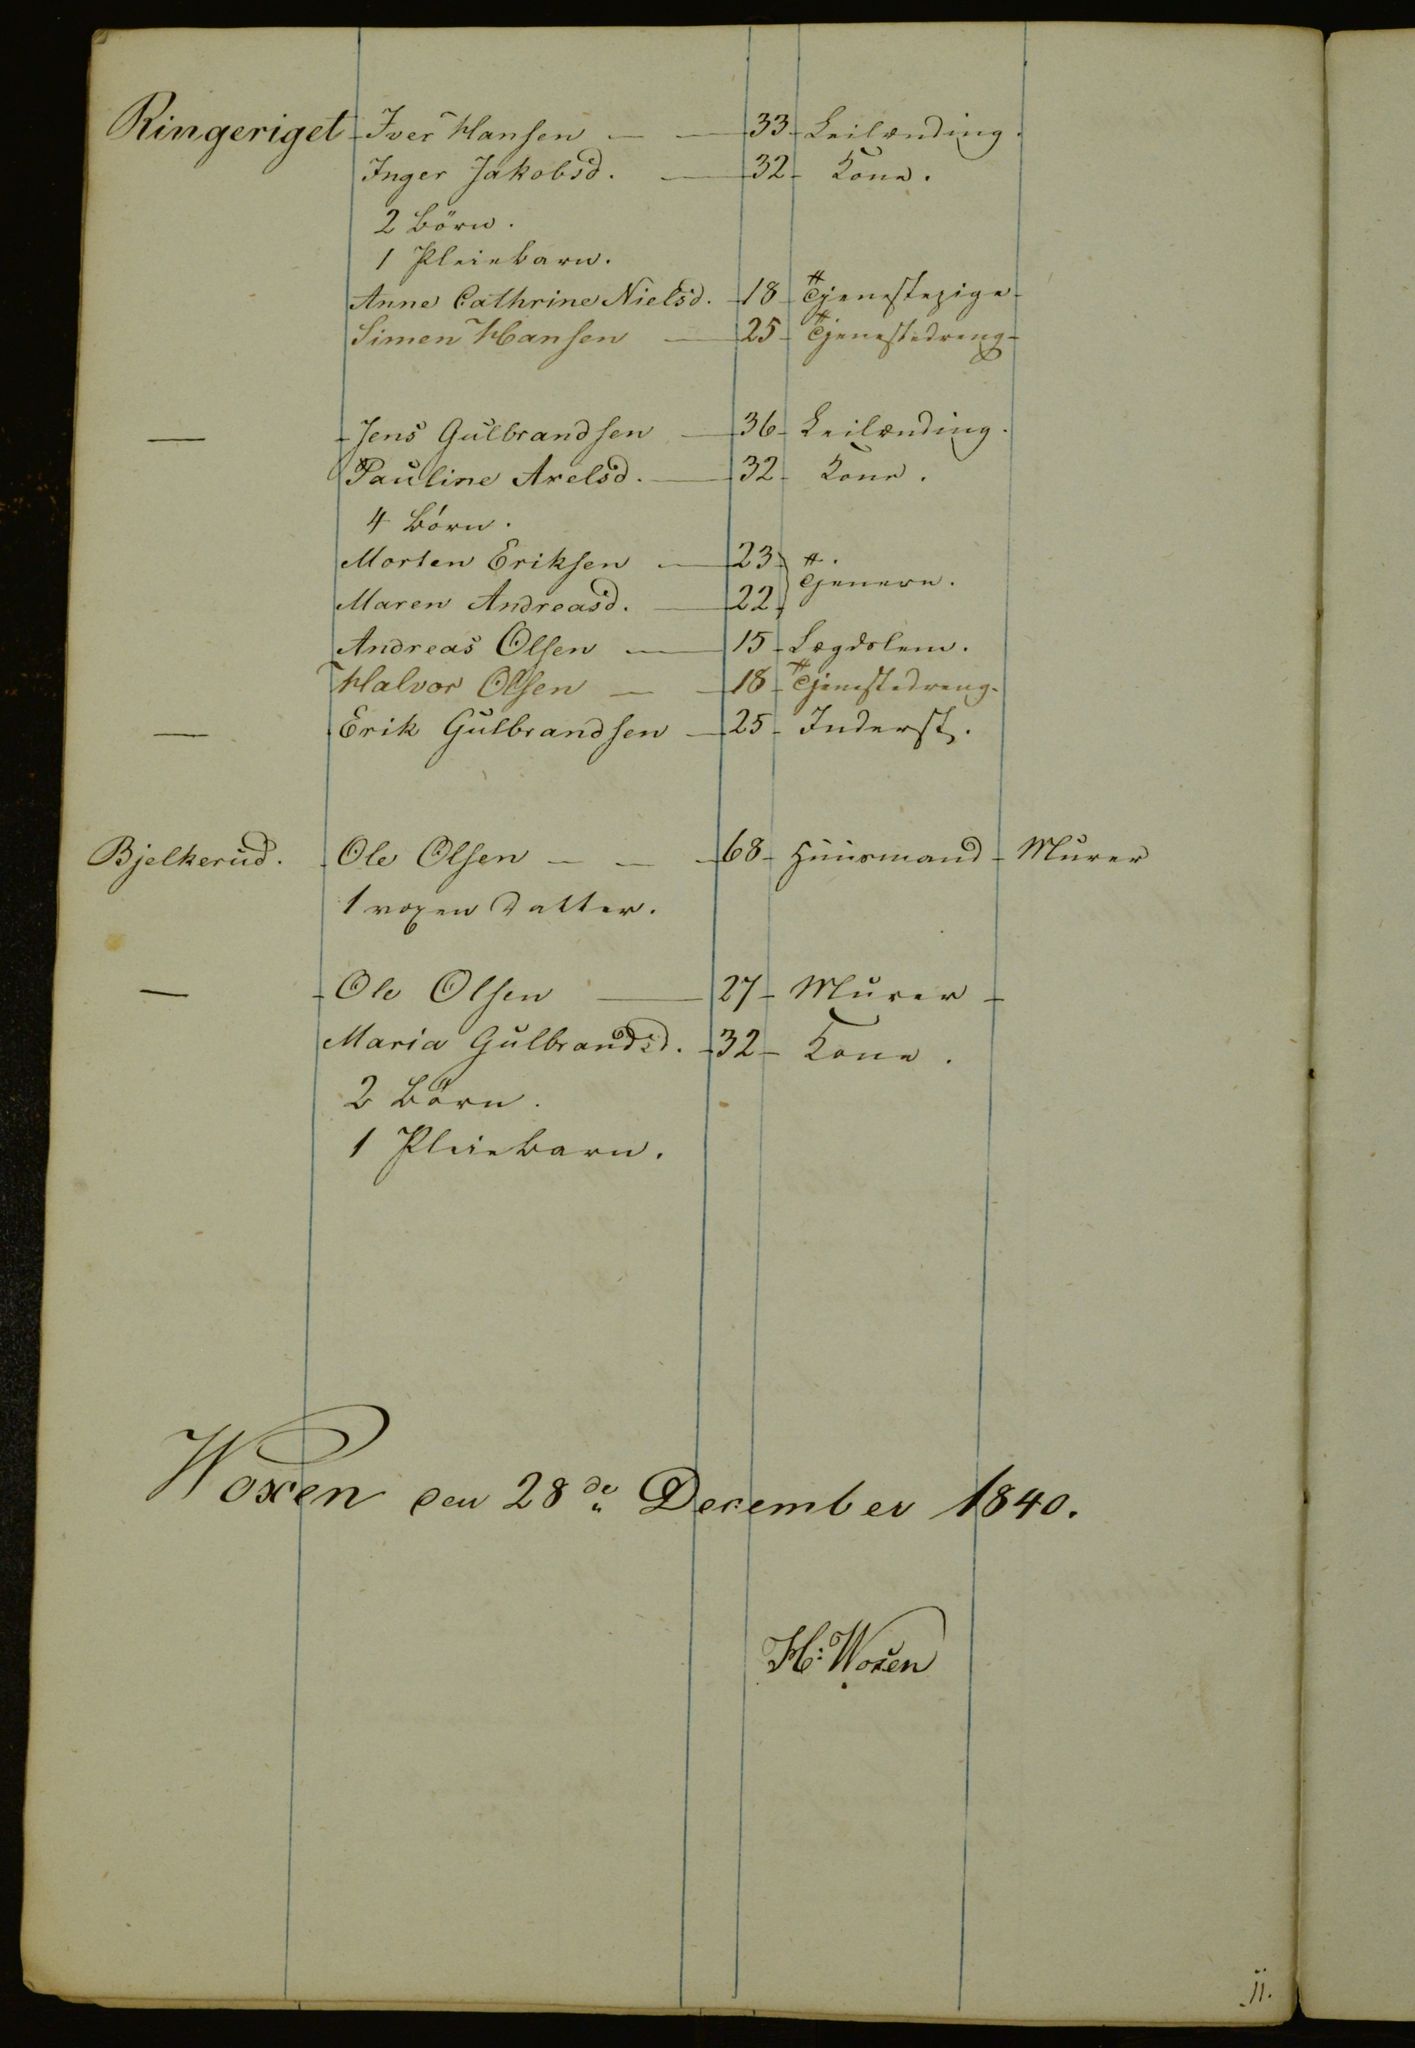 Ringeriget - Iver Hansen — — 33 - Leilænding.
Inger Jakobsd. — 32 - Kone.
2 Börn.
1 Pleiebarn.
Anne Cathrine Nielsd. - 18 - Tjenestepige -
Simen Hansen — 25 - Tjenestedreng -
— - Jens Gulbrandsen — 36 - Leilænding.
Pauline Axelsd. — 32 - Kone.
4 Börn.
Morten Eriksen — 23 } Tjenere.
Maren Andreasd. — 22 }
Andreas Olsen — 15 - Lægdslem.
Halvor Olsen — — 18 - Tjenestedreng -
— Erik Gulbrandsen — 25 - Inderst.
Bjelkerud. - Ole Olsen — — - 68 - Huusmand - Murer
1 voxen Datter.
— - Ole Olsen — 27 - Murer -
Maria Gulbrandsd. - 32 - Kone.
2 Börn.
1 Pleiebarn.
Woxen den 28de December 1840.
H: Woxen
11.